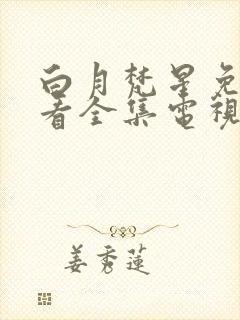 白月梵星免
看全集電視
姜秀蓮